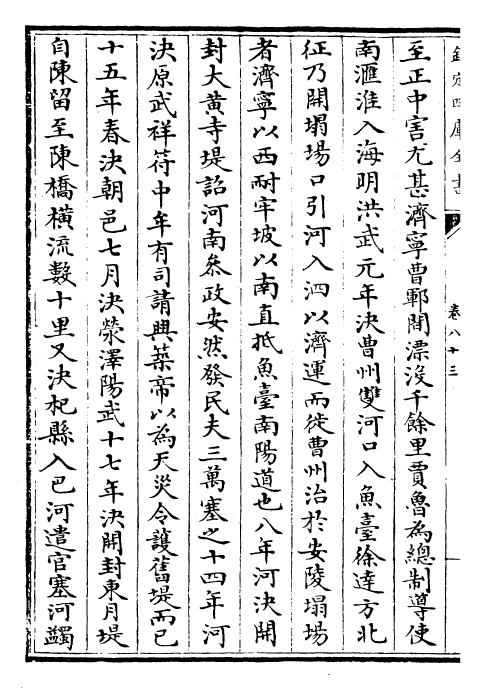 欽定四庫全書
卷八十三
至正中害尤甚濟寧曹鄆間漂沒千餘里賈魯為總制導使
南滙淮入海明洪武元年決曹州雙河口入魚臺徐達方北
征乃開塌場口引河入泗以濟運而徙曹州治於安陵塌場
者濟寧以西耐牢坡以南直抵魚臺南陽道也八年河決開
封大黃寺堤詔河南叅政安然發民夫三萬塞之十四年河
決原武祥符中牟有司請興築帝以為天災令護舊堤而已
十五年春決朝邑七月決滎澤陽武十七年決開封東月堤
自陳留至陳橋橫流數十里又決杞縣入巴河遣官塞河蠲